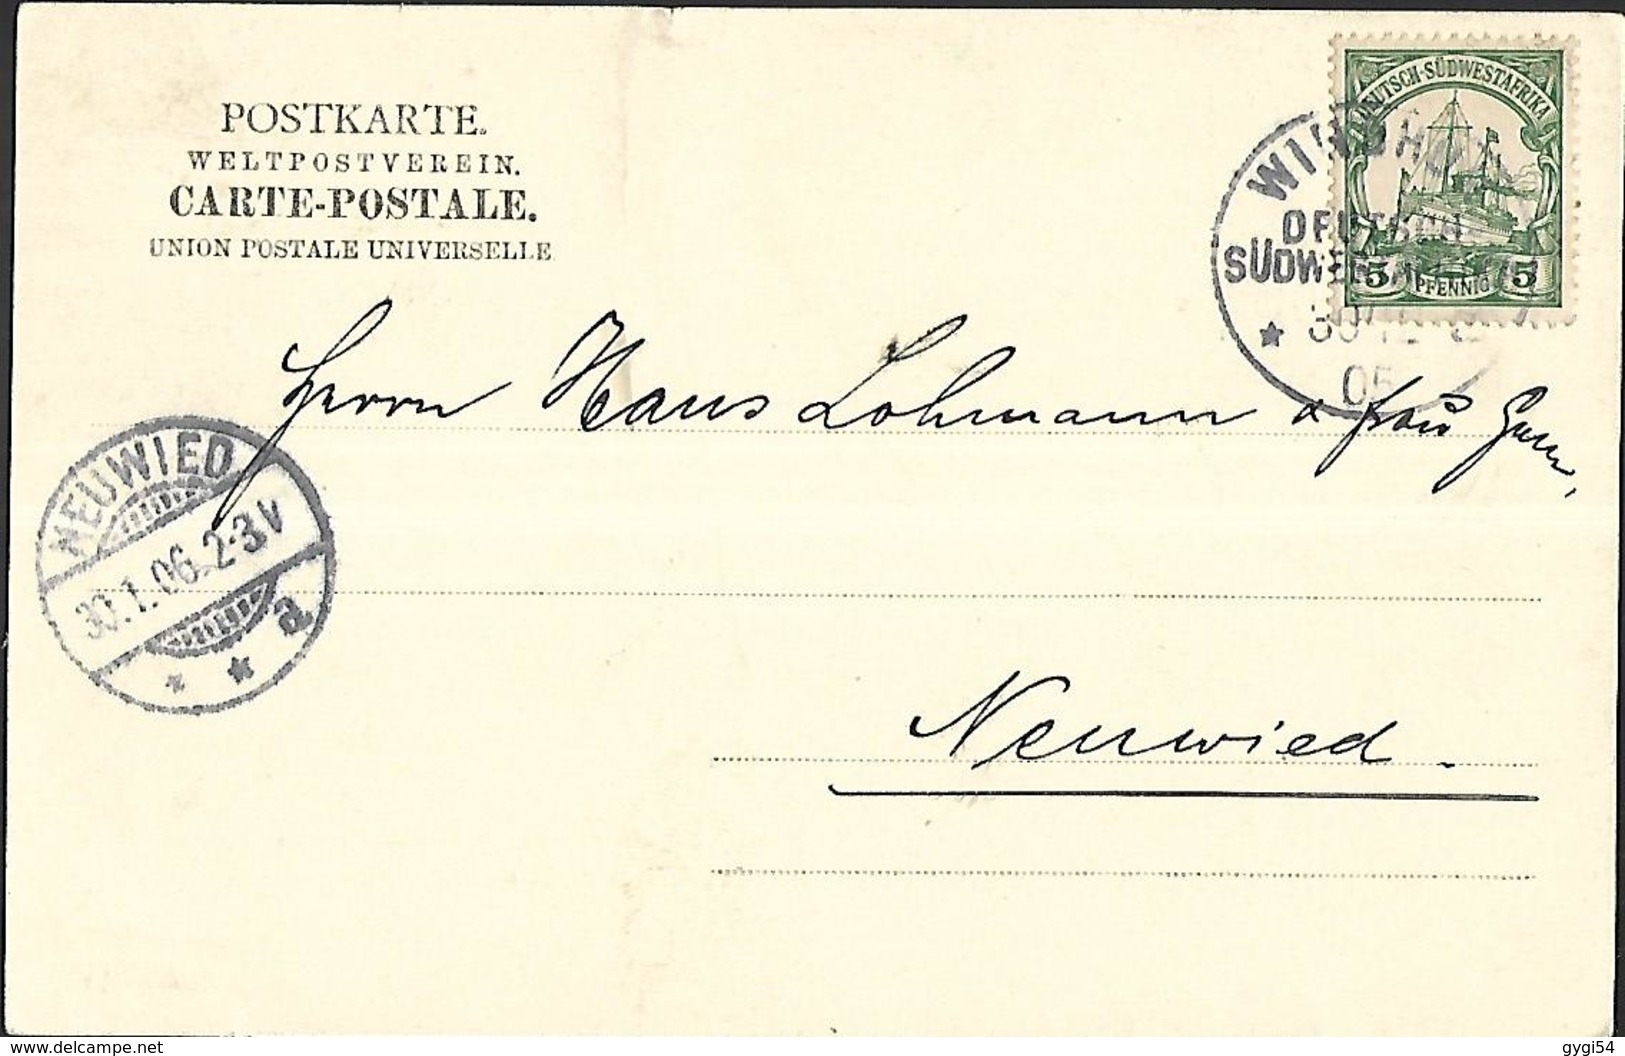 POSTKARTE.
WELTPOSTVEREIN.
CARTE-POSTALE.
UNION POSTALE UNIVERSELLE
DEUTSCH-SÜDWESTAFRIKA
5 PFENNIG 5
WINDHUK
DEUTSCH
SÜDWESTAFRIKA
05
Herrn Hans Lohmann & Frau
NEUWIED
30.1.06.2-3V
a
Neuwied.
www.delcampe.net
gygi54